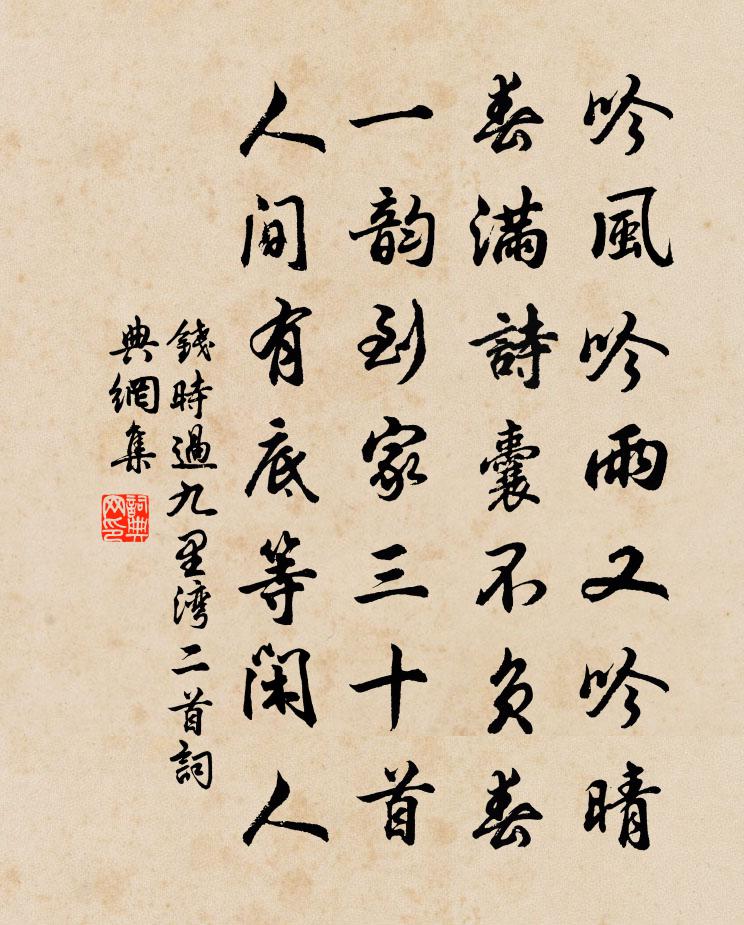 吟風吟雨又吟晴
春滿詩囊不負春
一韵到家三十首
人间有底等闲人
錢時過九里湾二首詞
典網集
詞典网印